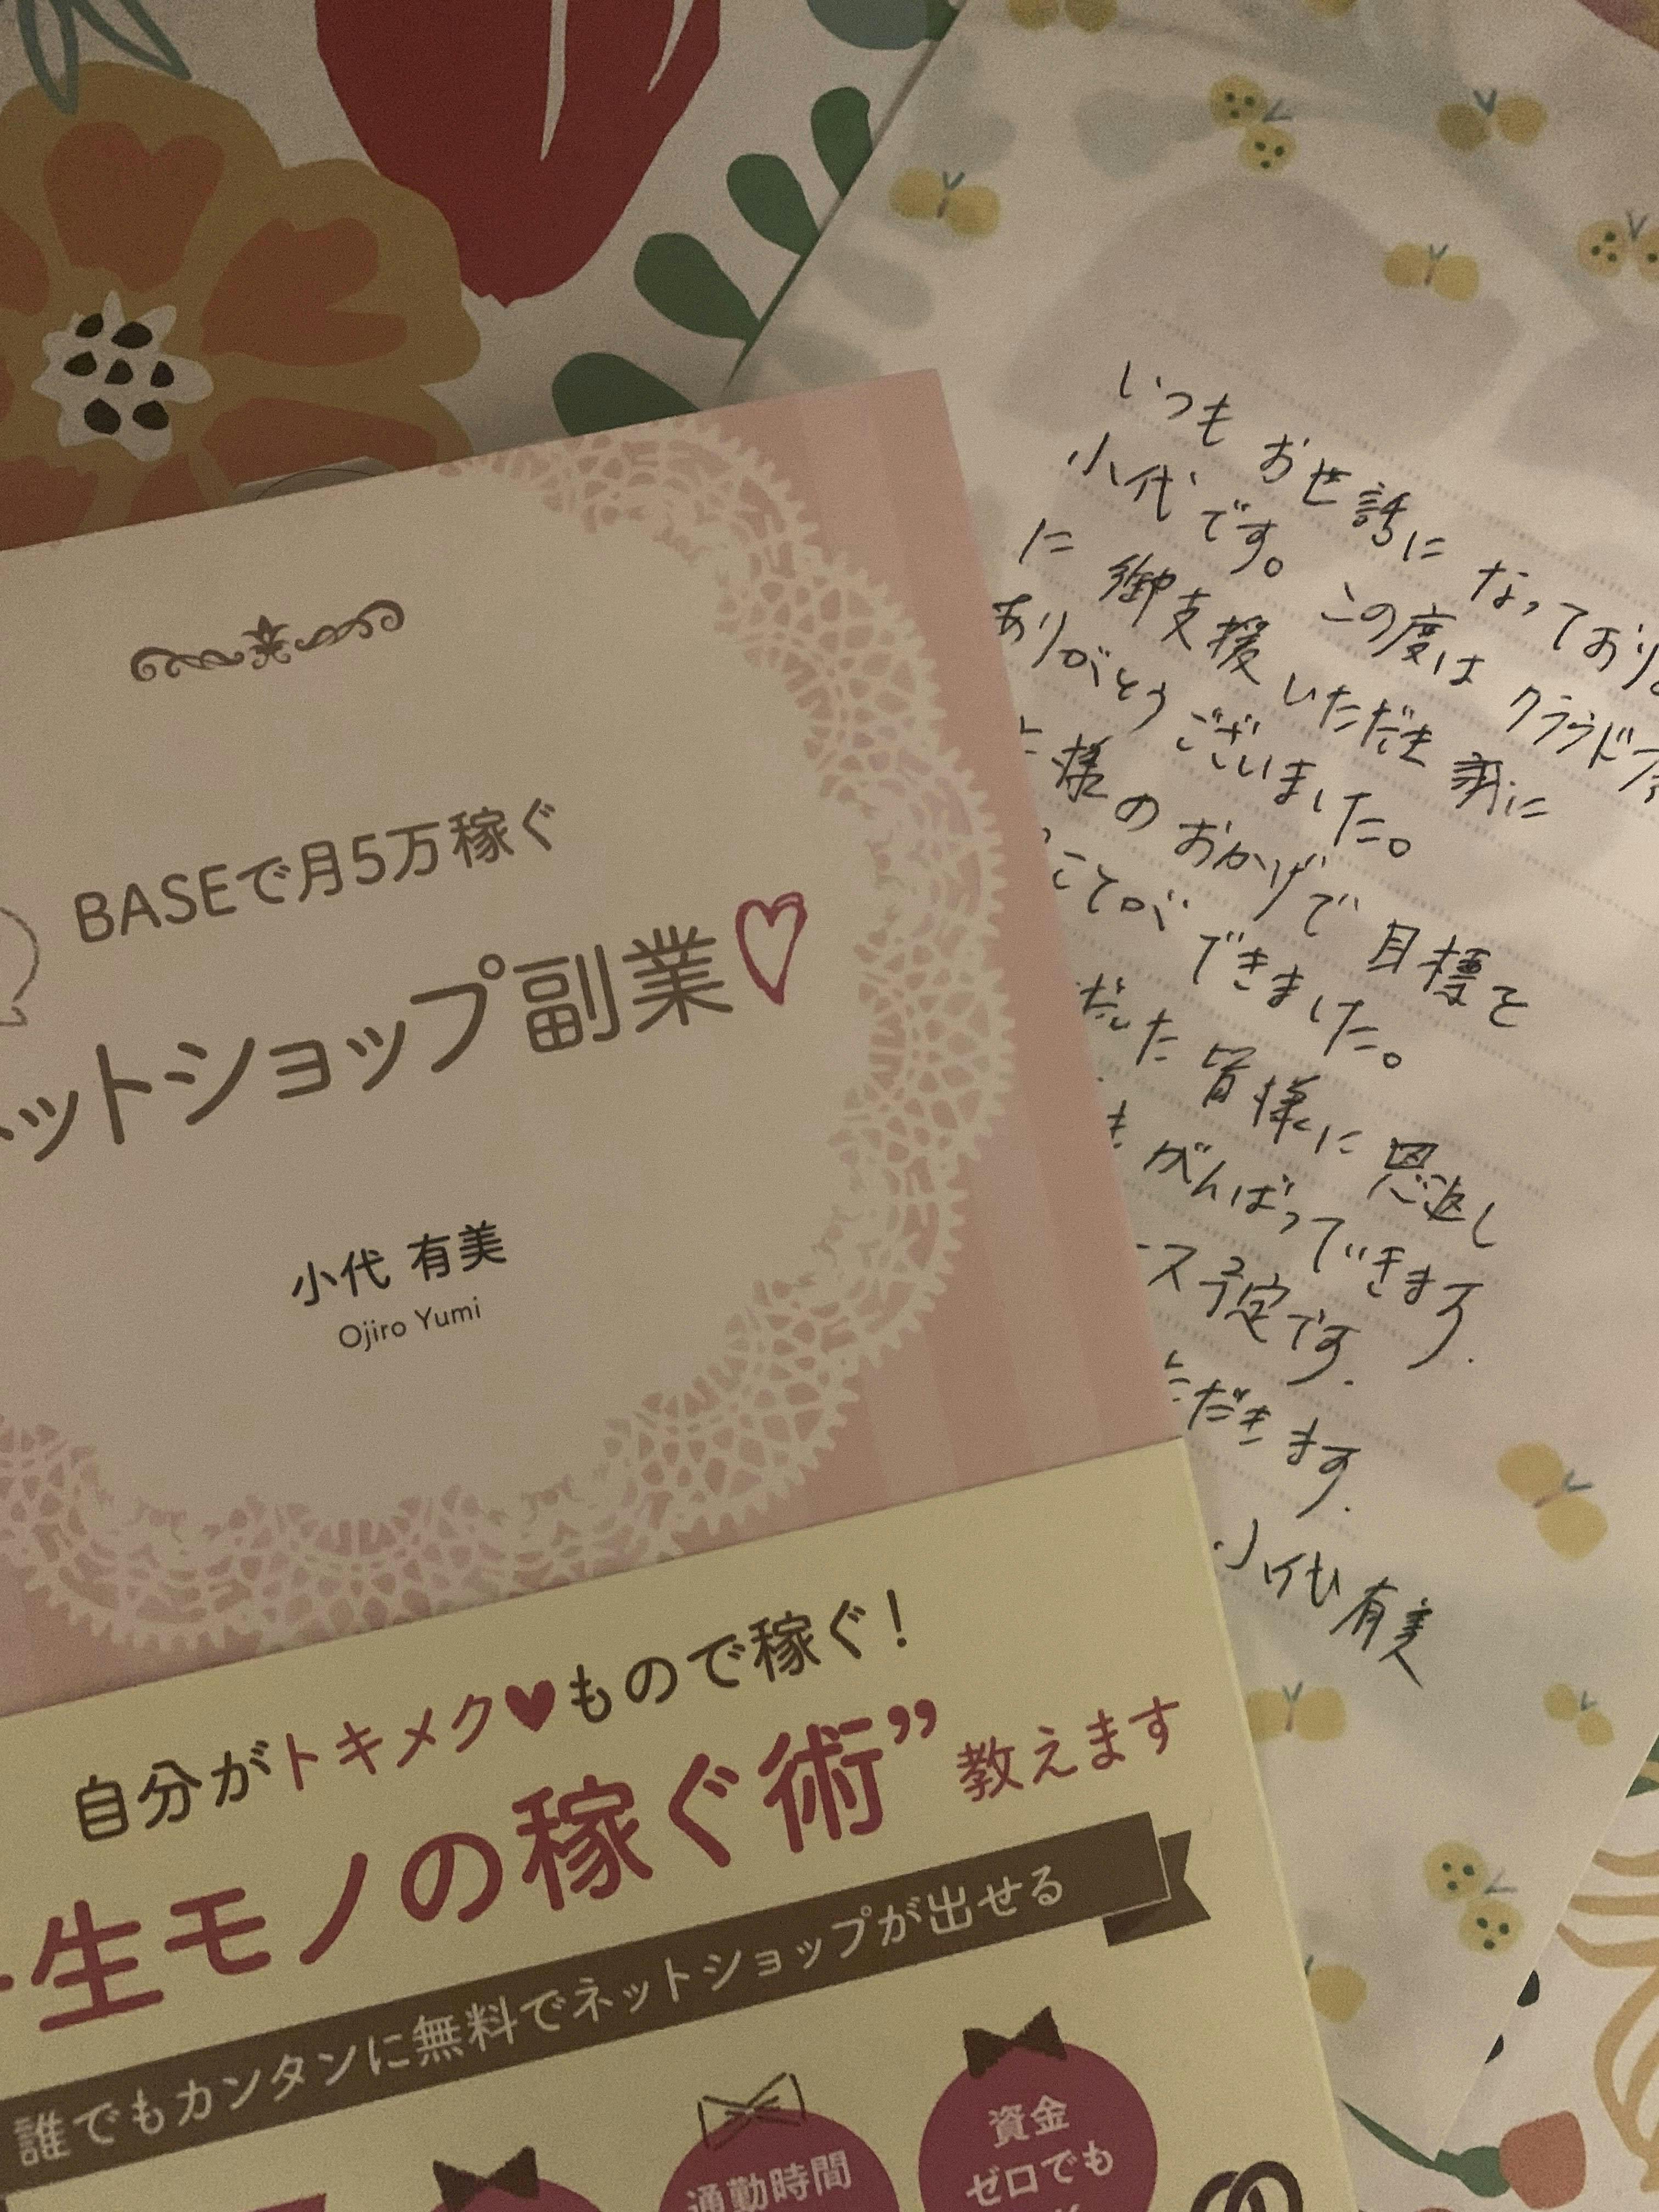 BASEで月5万稼ぐ
ットショップ副業
小代 有美
Ojiro Yumi
自分がトキメク♥もので稼ぐ!
一生モノの稼ぐ術”教えます
誰でもカンタンに無料でネットショップが出せる
通勤時間
資金
ゼロでも
いつも お世話に なっており
小代です。この度は クラウドファ
に 御支援 いただき 誠に
ありがとう ございました。
様の おかげで 目標を
ことが できました。
だいた 皆様に 恩返し
がんばっていきます.
ス予定です.
ただきます.
小代 有美